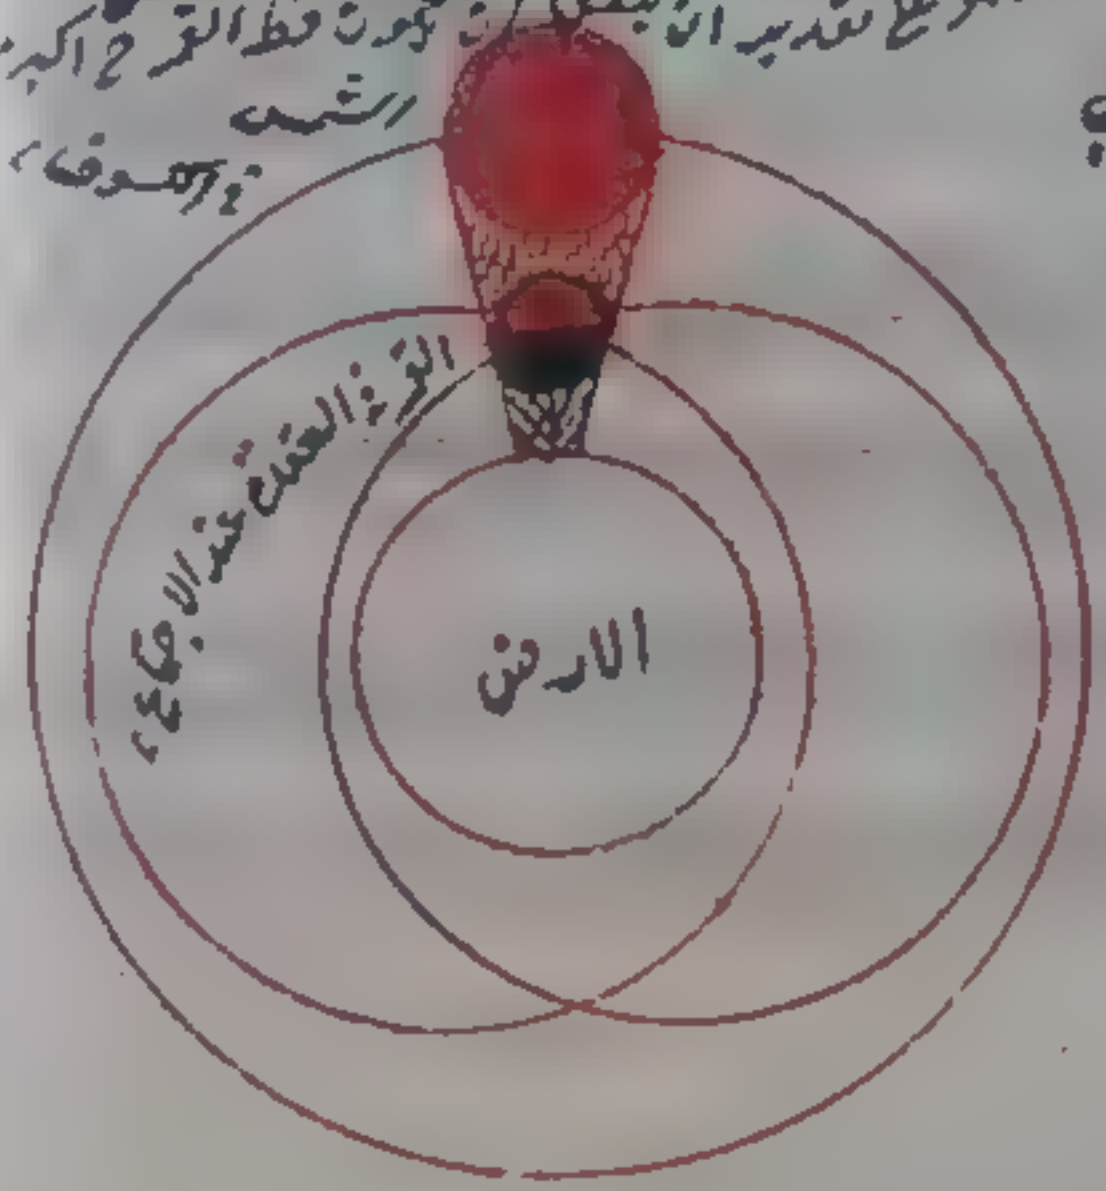 تقدير ان يكون قطر القمر اكبر
الشمس
في الكسوف
القمر في العقدة عند الاجتماع
الارض